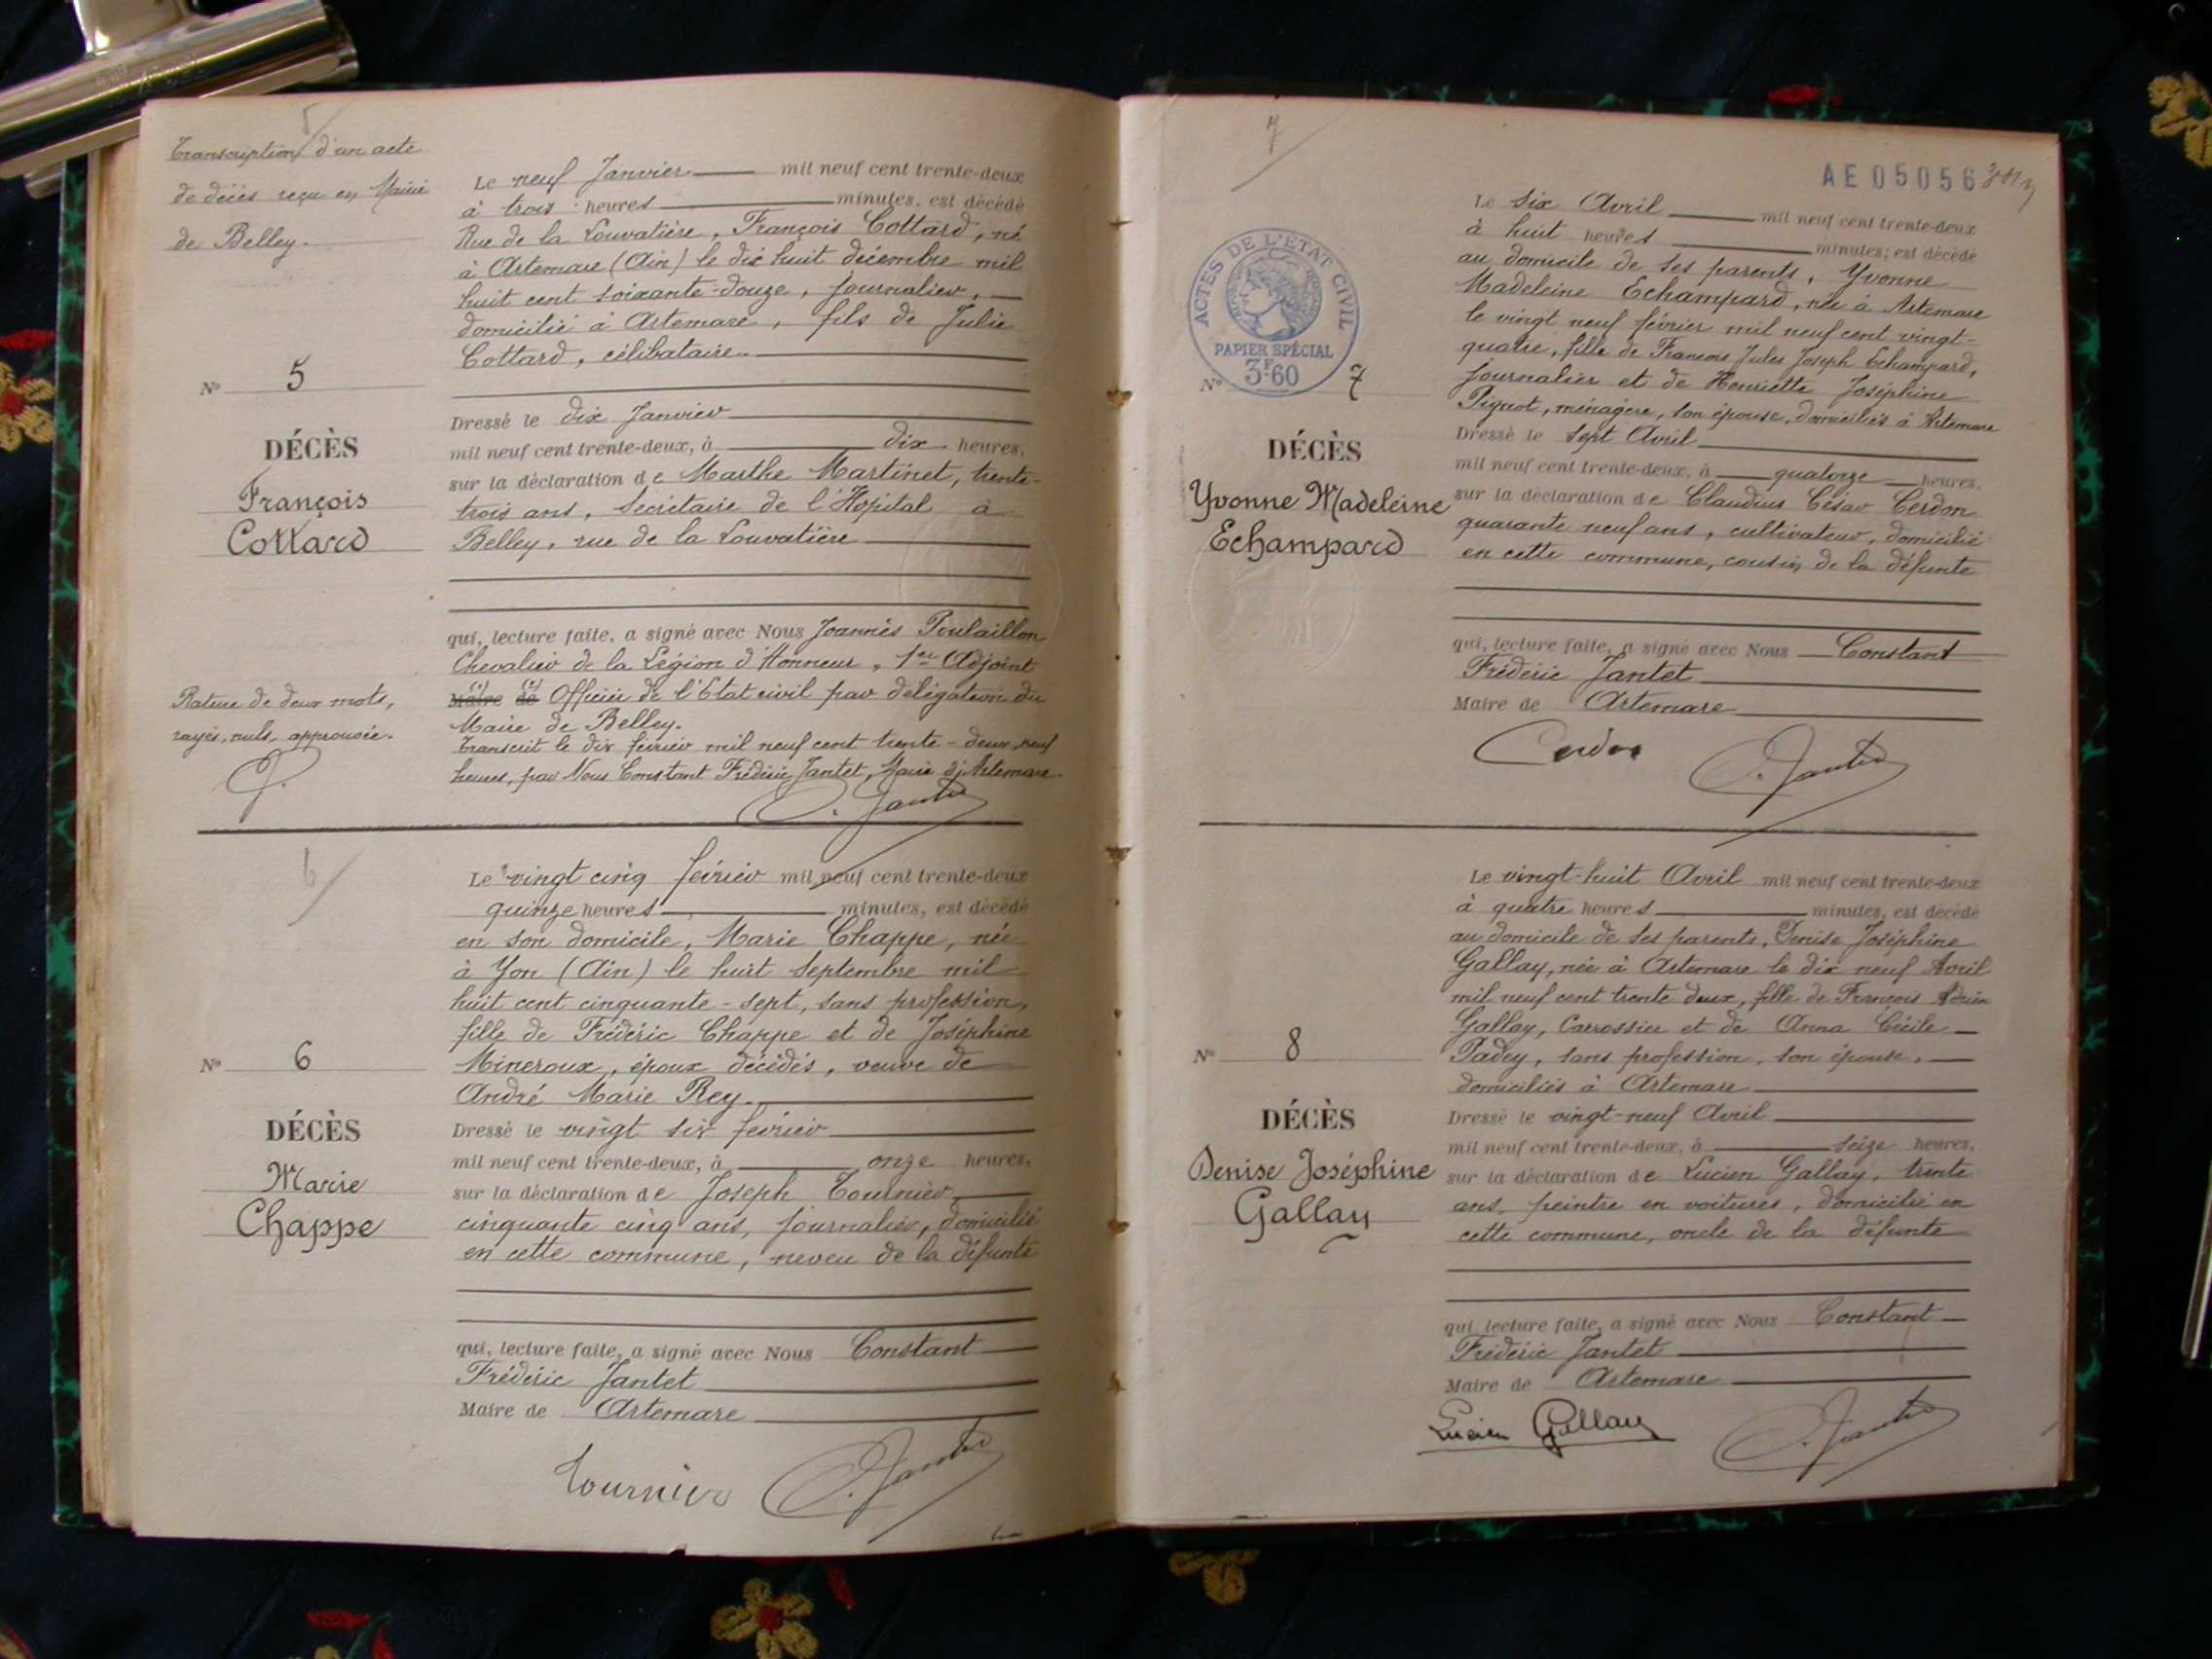 5
Transcription d'un acte
de décès reçu en Mairie
de Belley.
N° 5
DÉCÈS
François
Cottard
Rature de deux mots,
rayés, nuls, approuvée.
Le neuf Janvier mil neuf cent trente-deux
à trois heures minutes, est décédé
Rue de la Louvatière, François Cottard, né
à Artemare (Ain) le dix huit décembre mil
huit cent soixante-douze, journalier,
domicilié à Artemare, fils de Julie
Cottard, célibataire.
Dressé le dix Janvier
mil neuf cent trente-deux, à dix heures,
sur la déclaration de Marthe Martinet, trente-
trois ans, Secrétaire de l'Hôpital à
Belley, rue de la Louvatière
qui, lecture faite, a signé avec Nous Joannès Poulaillon
Chevalier de la Légion d'Honneur, 1er Adjoint
Maire de Officier de l'Etat civil par délégation du
Maire de Belley.
Transcrit le dix février mil neuf cent trente-deux, neuf
heures, par Nous Constant Frédéric Jantet, Maire d'Artemare.
C. Jantet
6
N° 6
DÉCÈS
Marie
Chappe
Le vingt cinq février mil neuf cent trente-deux
quinze heures minutes, est décédé
en son domicile, Marie Chappe, née
à Yon (Ain) le huit Septembre mil
huit cent cinquante-sept, sans profession,
fille de Frédéric Chappe et de Joséphine
Mineroux, époux décédés, veuve de
André Marie Rey.
Dressé le vingt six février
mil neuf cent trente-deux, à onze heures,
sur la déclaration de Joseph Tournier,
cinquante cinq ans, journalier, domicilié
en cette commune, neveu de la défunte
qui, lecture faite, a signé avec Nous Constant
Frédéric Jantet
Maire de Artemare
Tournier C. Jantet
7
AE 05056
ACTES DE L'ÉTAT CIVIL
PAPIER SPÉCIAL
3F60
N° 7
DÉCÈS
Yvonne Madeleine
Echampard
Le six Avril mil neuf cent trente-deux
à huit heures minutes, est décédé
au domicile de ses parents, Yvonne
Madeleine Echampard, née à Artemare
le vingt neuf février mil neuf cent vingt-
quatre, fille de François Jules Joseph Echampard,
journalier et de Henriette Joséphine
Pignot, ménagère, son épouse, domiciliés à Artemare
Dressé le sept Avril
mil neuf cent trente-deux, à quatorze heures,
sur la déclaration de Claudius César Cerdon
quarante neuf ans, cultivateur, domicilié
en cette commune, cousin de la défunte
qui, lecture faite, a signé avec Nous Constant
Frédéric Jantet
Maire de Artemare
Cerdon C. Jantet
N° 8
DÉCÈS
Denise Joséphine
Gallay
Le vingt-huit Avril mil neuf cent trente-deux
à quatre heures minutes, est décédé
au domicile de ses parents, Denise Joséphine
Gallay, née à Artemare le dix neuf Avril
mil neuf cent trente deux, fille de François Adrien
Gallay, Carrossier et de Anna Cécile
Padey, sans profession, son épouse,
domiciliés à Artemare
Dressé le vingt-neuf Avril
mil neuf cent trente-deux, à seize heures,
sur la déclaration de Lucien Gallay, trente
ans, peintre en voitures, domicilié en
cette commune, oncle de la défunte
qui, lecture faite, a signé avec Nous Constant
Frédéric Jantet
Maire de Artemare
Lucien Gallay C. Jantet